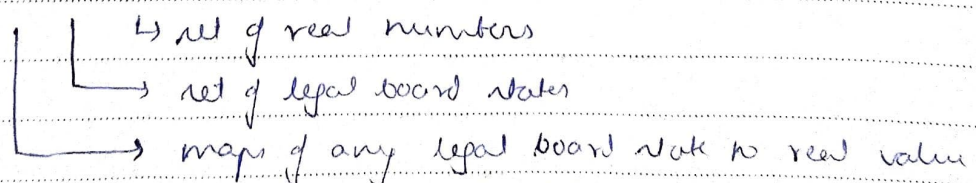 ↳ set of real numbers
→ set of legal board states
→ maps of any legal board state to real value